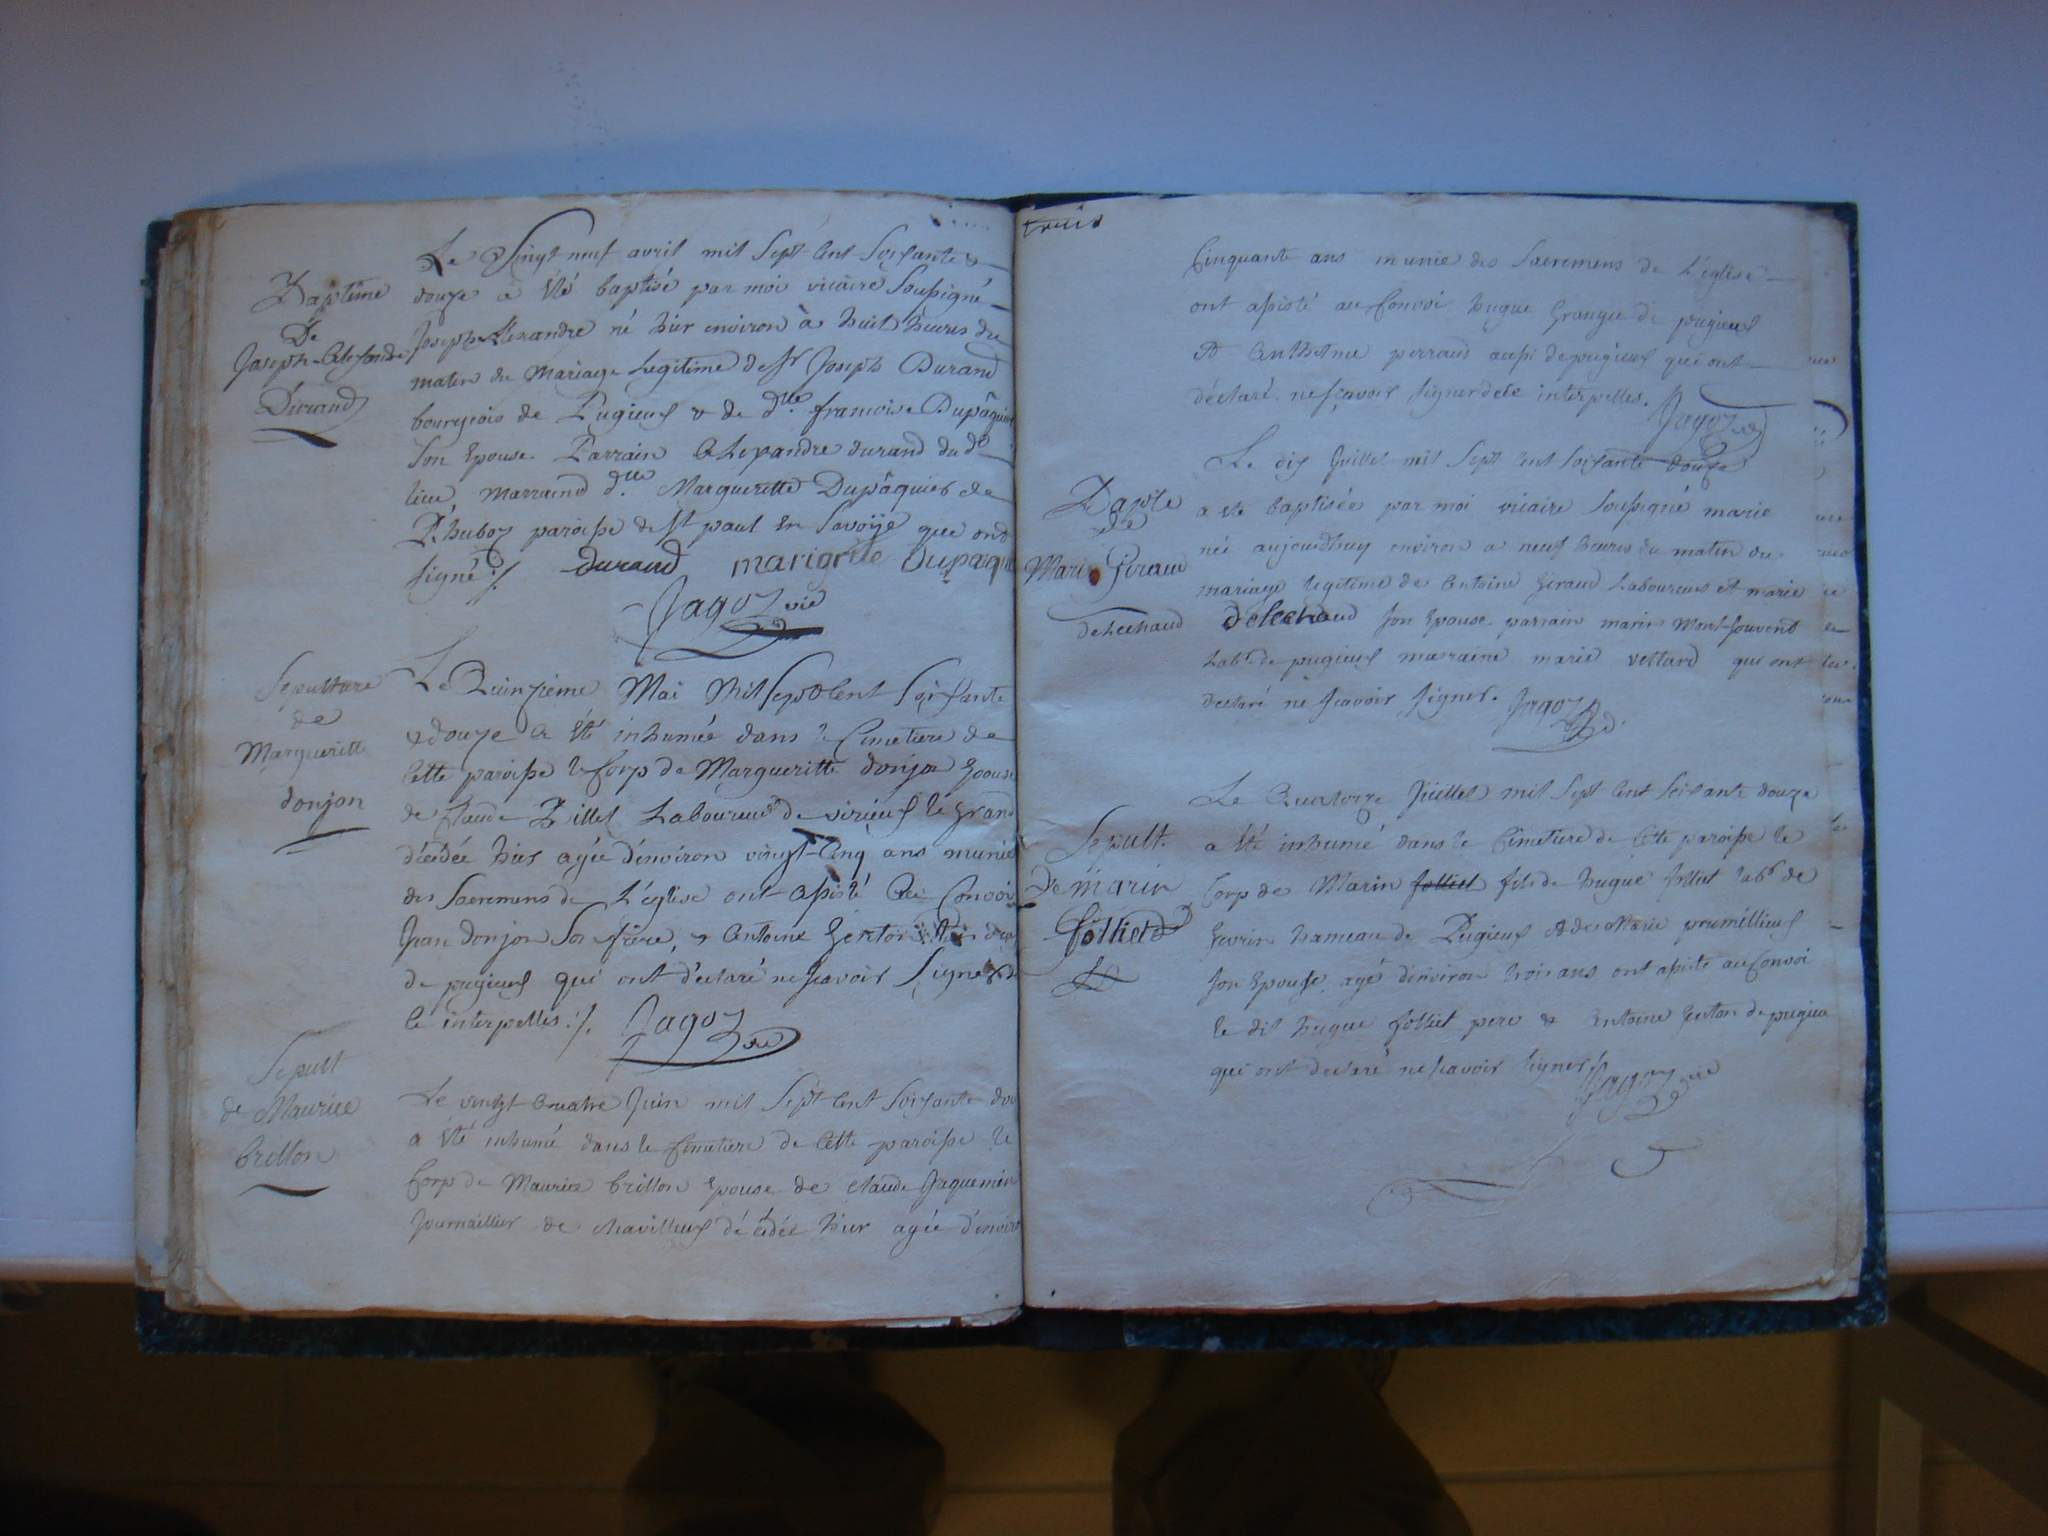 Baptême
De
Joseph-Alexandre
Durand
Le Vingt neuf avril mil Sept Cent Soixante &
douze a été baptisé par moi vicaire Soussigné
Joseph Alexandre né hier environ à huit heures du
matin du Mariage Legitime de Sr Joseph Durand
bourgeois de Pugieux & de dlle francoise Dupâquier
Son Epouse. Parrain Alexandre durand du dt
lieu, marraine dlle Margueritte Dupâquier de
paroisse de St paul En Savoÿe que ont
signé ./. durand margorite Dupaqui
Jagoz vic
Sepulture
de
Margueritte
donjon
Le Quinzième Mai Mil Sept Cent Soixante
& douze a été inhumée dans le Cimetiere de
Cette paroisse le Corp de Margueritte donjon Epouse
de Claude Billet Laboureur de virieux le Grand
décédée hier agée d'environ vingt-Cinq ans munie
des Sacremens de L'église ont assisté au Convoi
Jean donjon Son frère, & Antoine Genton
de pugieux qui ont déclaré ne scavoir Signer de
ce interpelles ./. Jagoz vic
Sepult
de Maurice
brillon
Le vingt Quatre Juin mil Sept Cent Soixante dou
a été inhumé dans le Cimetiere de Cette paroisse le
Corp de Maurice brillon Epouse de Claude Jaquemin
Journaillier de chavillieux décédée hier agée d'enviro
trois
Cinquante ans munie des Sacremens de L'église
ont assisté au Convoi hugue Grangie de pugieux
et Anthelme perraud aussi de pugieux qui ont
déclaré ne sçavoir signer de ce interpelles. Jagoz vic
Bapte
de
Marie Giraud
delechaud
Le dix Juillet mil Sept Cent Soixante douze
a été baptisée par moi vicaire Soussigné marie
née aujourdhuy environ a neuf heures du matin du
mariage legitime de Antoine Giraud Laboureur et marie
delechaud Son Epouse parrain marin Mont-Jouvent
labr de pugieux marraine marie vettard qui ont
declaré ne scavoir signer. Jagoz
Sepult.
De marin
folliet
Le Quatorze Juillet mil Sept Cent Soixante douze
a été inhumé dans le Cimetiere de Cette paroisse le
Corp de Marin folliet fils de hugue folliet labr de
hameau de Pugieux et de Marie prumillieux
Son Epouse, agé d'environ trois ans ont assisté au Convoi
le dit hugue folliet pere & Antoine Genton de pugieu
qui ont declaré ne scavoir signer ./. Jagoz vic